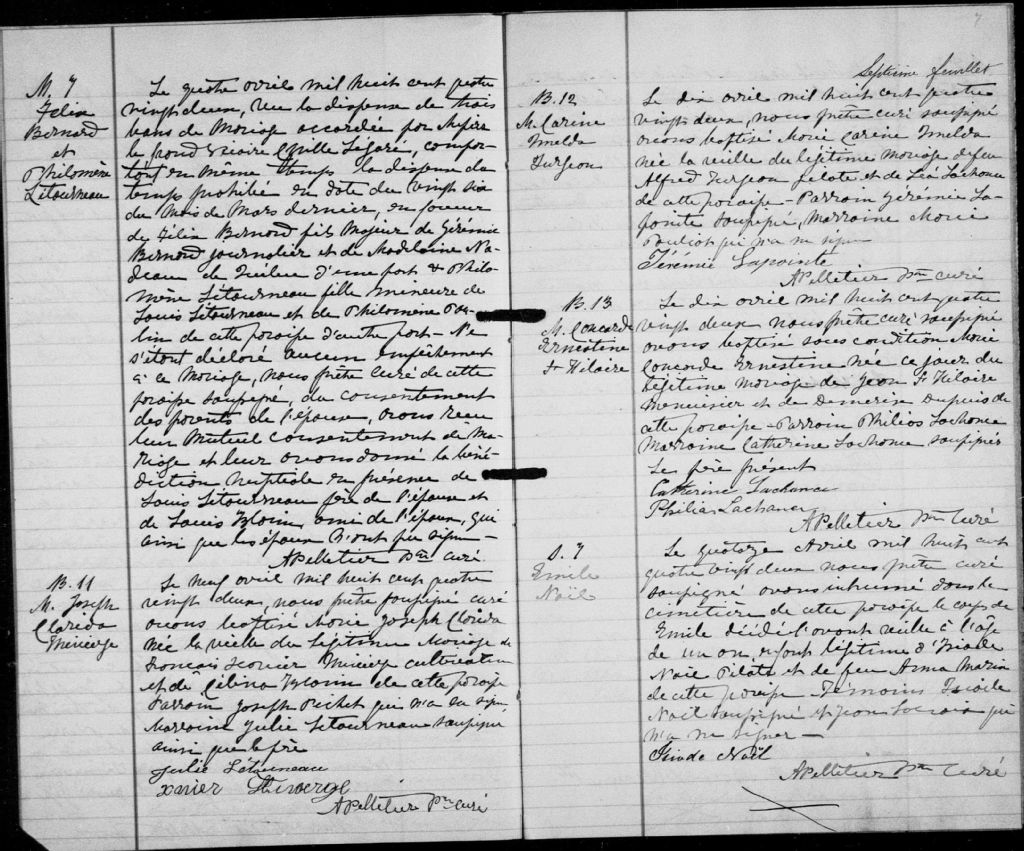 M. 7
Felix
Bernard
et
Philomène
Létourneau
Le quatre avril mil huit cent quatre
vingt deux, vu la dispense de trois
bans de Mariage accordée par Messire
le grand Vicaire Cyrille Légaré, compor-
tant en même temps la dispense du
temps prohibé en date du vingt six
du mois de Mars dernier, en faveur
de Félix Bernard fils Majeur de Gérémie
Bernard journalier et de Madeleine Na-
deau de d'une part & Philo-
mène Létourneau fille mineure de
Louis Létourneau et de Philomène Pou-
lin de cette paroisse d'autre part - Ne
s'étant déclaré aucun empêchement
à ce Mariage, nous prêtre Curé de cette
paroisse soussigné, du consentement
des parents de l'épouse, avons reçu
leur mutuel consentement de Ma-
riage et leur avons donné la béné-
diction nuptiale en présence de
Louis Létourneau père de l'épouse et
de Louis Blouin, ami de l'époux, qui
ainsi que les époux n'ont pu signer -
A Pelletier Ptre Curé
B. 11
M. Joseph
Clorida
Thivierge
Le neuf avril mil huit cent quatre
vingt deux, nous prêtre soussigné curé
avons baptisé Marie Joseph Clorida
née la veille du légitime Mariage de
François Xavier Thivierge cultivateur
et de Célina Blouin de cette paroisse
Parrain Joseph Pichet qui n'a su signer,
Marraine Julie Létourneau soussignée
ainsi que le père
Julie Létourneau
Xavier Thivierge
A Pelletier Ptre Curé
7
Septième feuillet
B. 12
M. Carine
Imelda
Turgeon
Le dix avril mil huit cent quatre
vingt deux, nous prêtre curé soussigné
avons baptisé Marie Carine Imelda
née la veille du légitime Mariage de feu
Alfred Turgeon pilote et de Léa Lachance
de cette paroisse - Parrain Gérémie La-
pointe soussigné, Marraine Marie
Pouliot qui n'a su signer
Jérémie Lapointe
A Pelletier Ptre curé
B. 13
M. Concorde
Ernestine
St Hilaire
Le dix avril mil huit cent quatre
vingt deux nous prêtre curé soussigné
avons baptisé sous condition Marie
Concorde Ernestine née ce jour du
légitime mariage de Jean St Hilaire
menuisier et de Demerise Dupuis de
cette paroisse - Parrain Philias Lachance
Marraine Catherine Lachance soussignés
Le père présent
Catherine Lachance
Philias Lachance
A Pelletier Ptre Curé
S. 7
Emile
Noël
Le quatorze Avril mil huit cent
quatre vingt deux nous prêtre curé
soussigné avons inhumé dans le
cimetière de cette paroisse le corps de
Emile décédé l'avant veille à l'âge
de un an, enfant légitime d'
Noël Pilote et de feu Anna
de cette paroisse Témoins
Noël soussigné et Jean qui
n'a su signer -
Noël
A Pelletier Ptre Curé